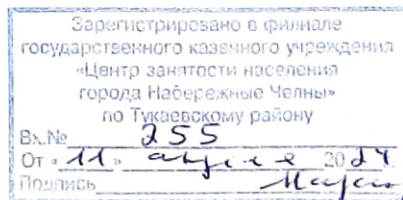 Зарегистрировано в филиале
государственного казенного учреждения
«Центр занятости населения
города Набережные Челны»
по Тукаевскому району
Вх.№ 255
От «11» апреля 2024.
Подпись